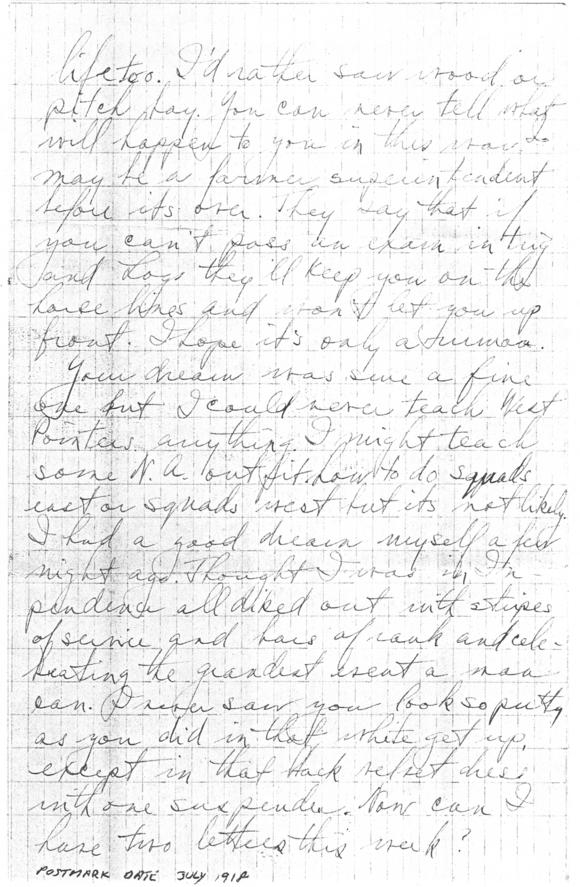 life too. I'd rather saw wood or
pitch hay. You can never tell what
will happen to you in this war.
may be a farmer superintendent
before its over. They say that if
you can't pass an exam in trig
and Logs they'll keep you on the
horse lines and won't let you up
front. I hope it's only a rumor.
Your dream was sure a fine
one but I could never teach West
Pointers anything. I might teach
some N. A. outfit how to do squads
east or squads west but its not likely.
I had a good dream myself a few
night ago. Thought I was in In-
pendence all diked out with stripes
of service and bars of rank and cele-
brating the grandest event a man
can. I never saw you look so putty
as you did in that white get up,
except in that black velvet dress
with one suspender. Now can I
have two letters this week?
POSTMARK DATE JULY 1918